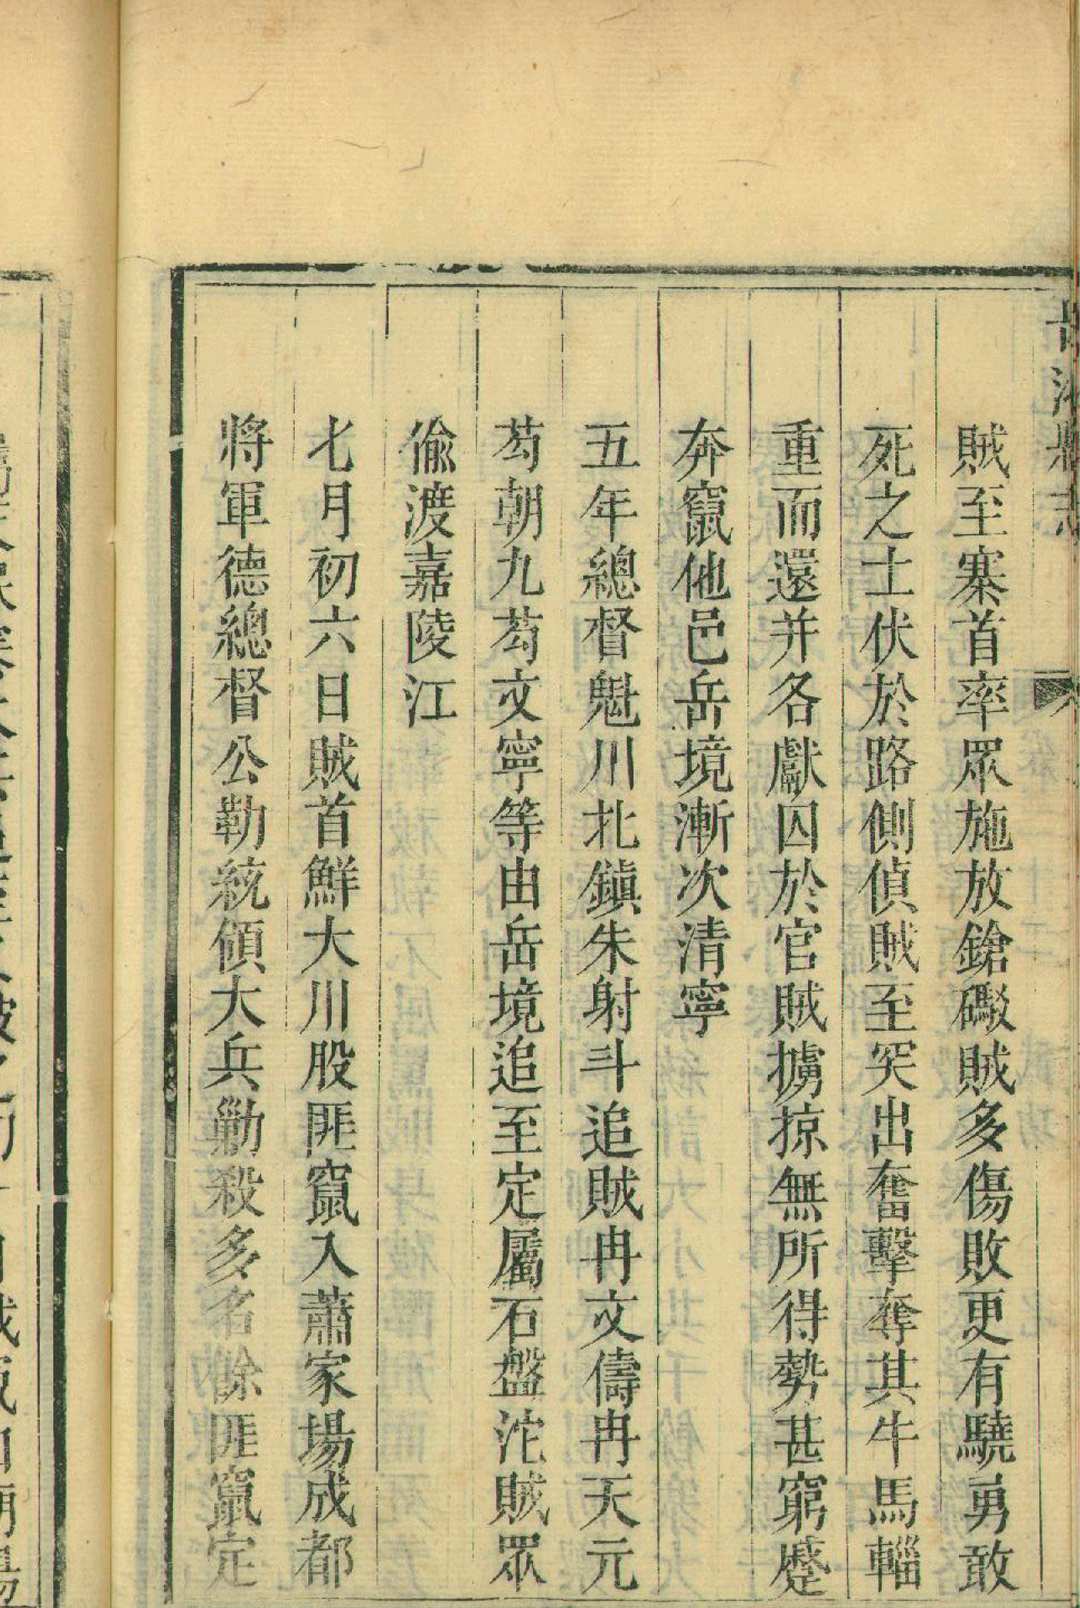 岳池縣志
賊至寨首率眾施放鎗礮賊多傷敗更有驍勇敢
死之士伏於路側偵賊至突出奮擊奪其牛馬輜
重而還并各獻囚於官賊擄掠無所得勢甚窮蹙
奔竄他邑岳境漸次清寧
五年總督魁川北鎮朱射斗追賊冉文儔冉天元
苟朝九苟文寧等由岳境追至定屬石盤沱賊眾
偷渡嘉陵江
七月初六日賊首鮮大川股匪竄入蕭家場成都
將軍德總督公勒統領大兵勦殺多名餘匪竄定